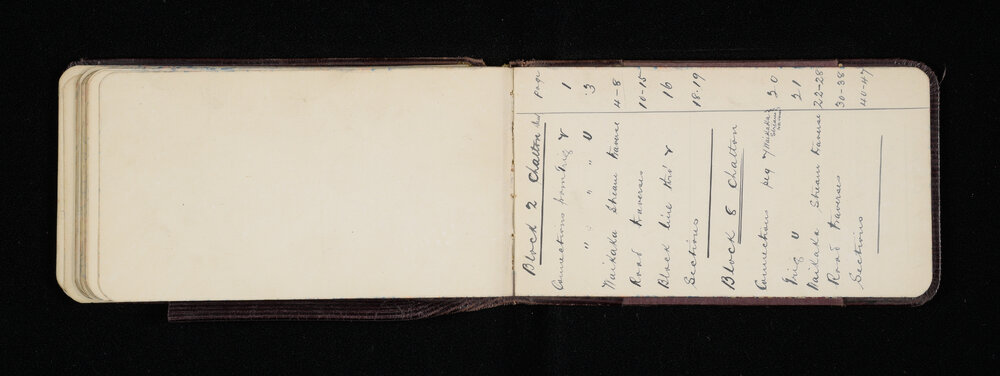 Page
Block 2 Chatton
Connections from Trig Y 1
" " " U 3
Waikaka Stream traverse 4-8
Road traverses 10-15
Block line thro' Y 16
Sections 18-19
Block 8 Chatton
Connections peg Y Waikaka Stream 20
Trig U 21
Waikaka Stream traverse 22-28
Road traverses 30-38
Sections 40-47